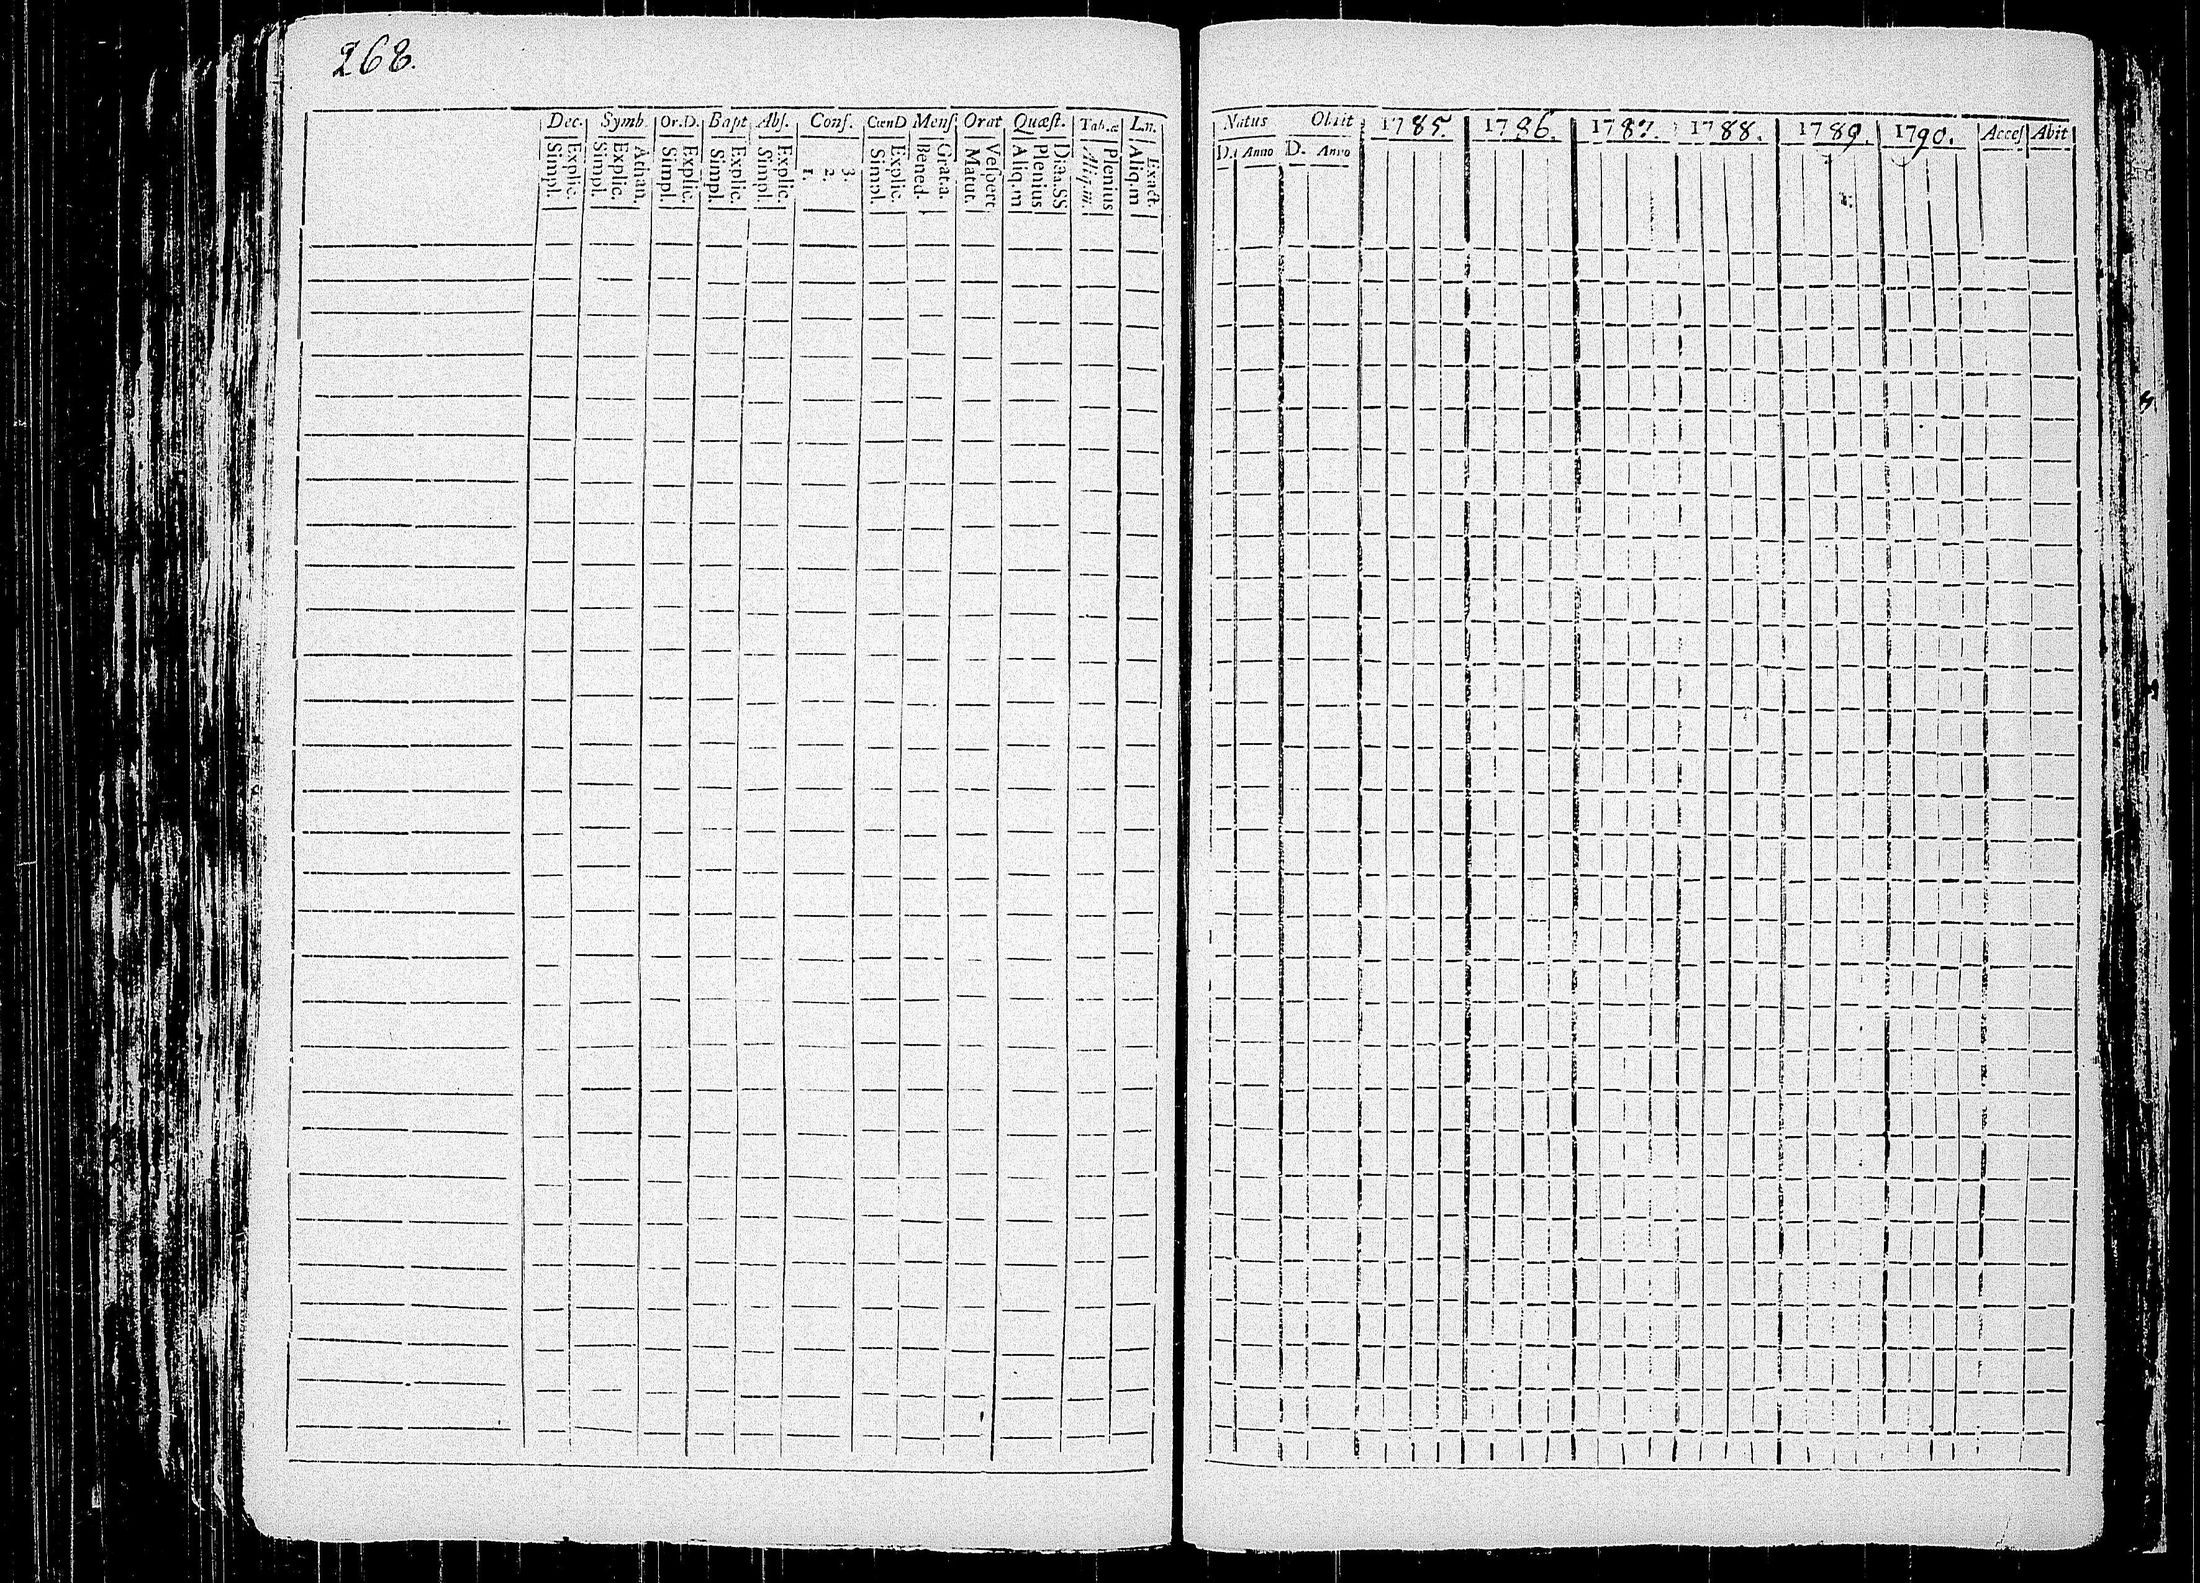 268.
Dec. Symb. Or.D. Bapt Abſ. Conf. CœnD Menſ Orat Quæſt. Tab.æ L.n.
Explic. Simpl. Athan. Explic. Simpl. Explic. Simpl. Explic. Simpl. Explic. Simpl. 3. 2. 1. Explic. Simpl. Grat.a. Bened. Veſpert Matut. Dictis SS Plenius Aliq.m Plenius Aliq.m. Exact. Aliq.m
Natus Obiit 1785. 1786. 1787. 1788. 1789. 1790. Acceſ Abit
D. Anno D. Anno